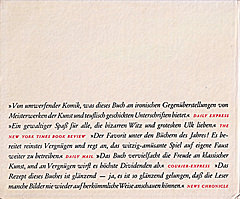 »Von umwerfender Komik, was dieses Buch an ironischen Gegenüberstellungen von
Meisterwerken der Kunst und teuflisch geschickten Unterschriften bietet.« DAILY EXPRESS
»Ein gewaltiger Spaß für alle, die bizarren Witz und grotesken Ulk lieben.« THE
NEW YORK TIMES BOOK REVIEW »Der Favorit unter den Büchern des Jahres! Es be-
reitet reinstes Vergnügen und regt an, das witzig-amüsante Spiel auf eigene Faust
weiter zu betreiben.« DAILY MAIL »Das Buch vervielfacht die Freude an klassischer
Kunst, und an Vergnügen wirft es höchste Dividenden ab.« COURIER-EXPRESS »Das
Rezept dieses Buches ist glänzend — ja, es ist so glänzend gelungen, daß die Leser
manche Bilder nie wieder auf herkömmliche Weise anschauen können.« NEWS CHRONICLE